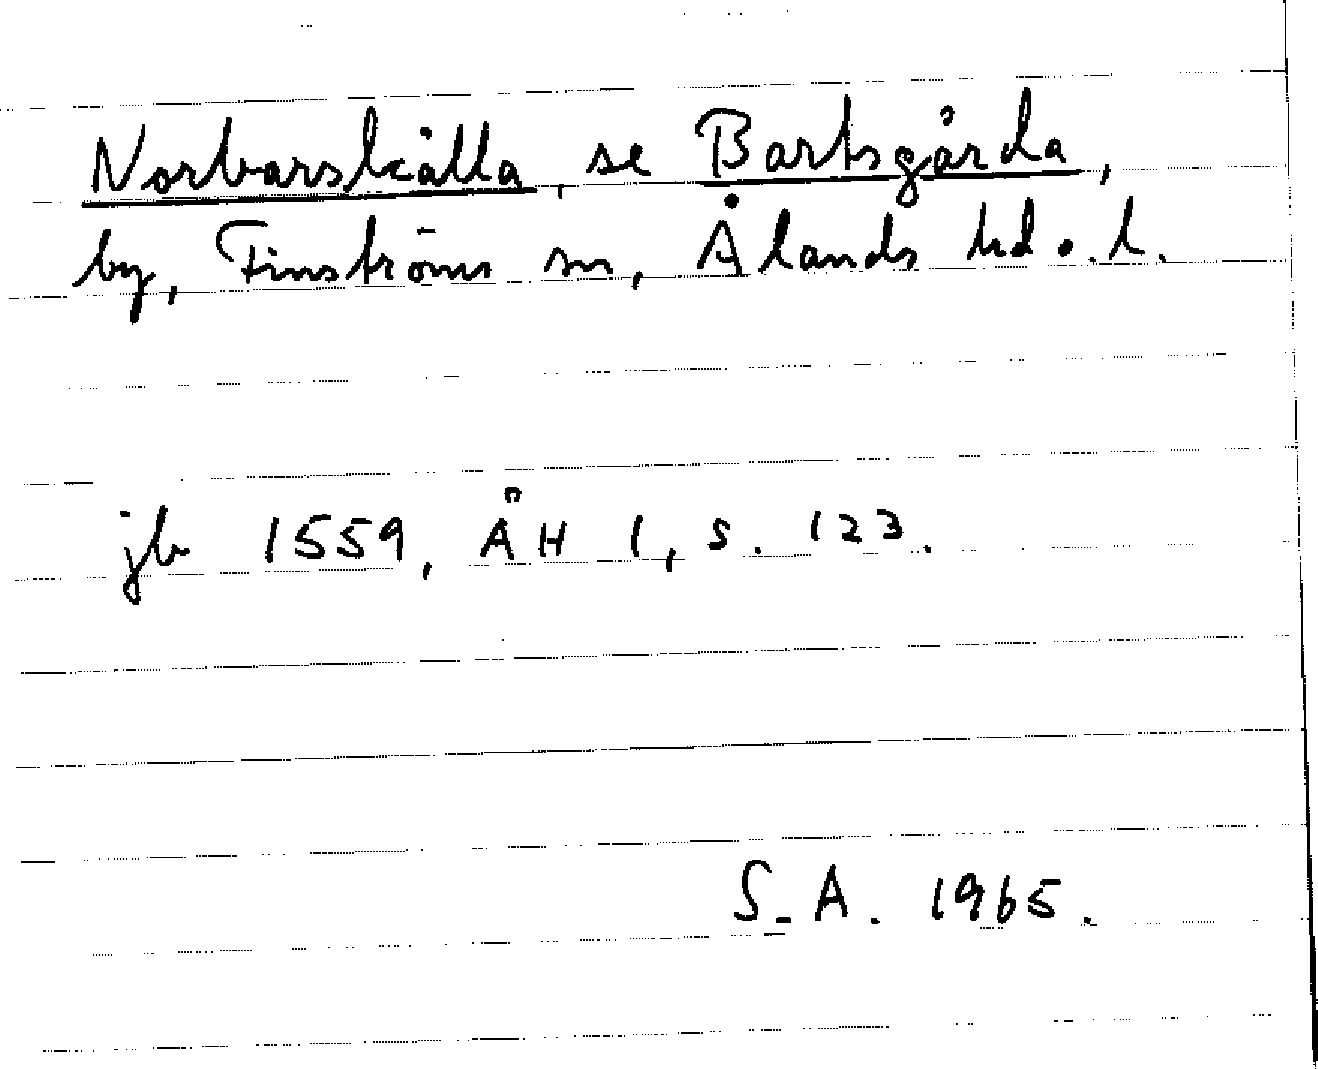 Norbarskålla, se Bartsgårda,
by, Finströms sn, Ålands hd o. l.
jb 1559, ÅH 1, s. 123.
S-A. 1965.